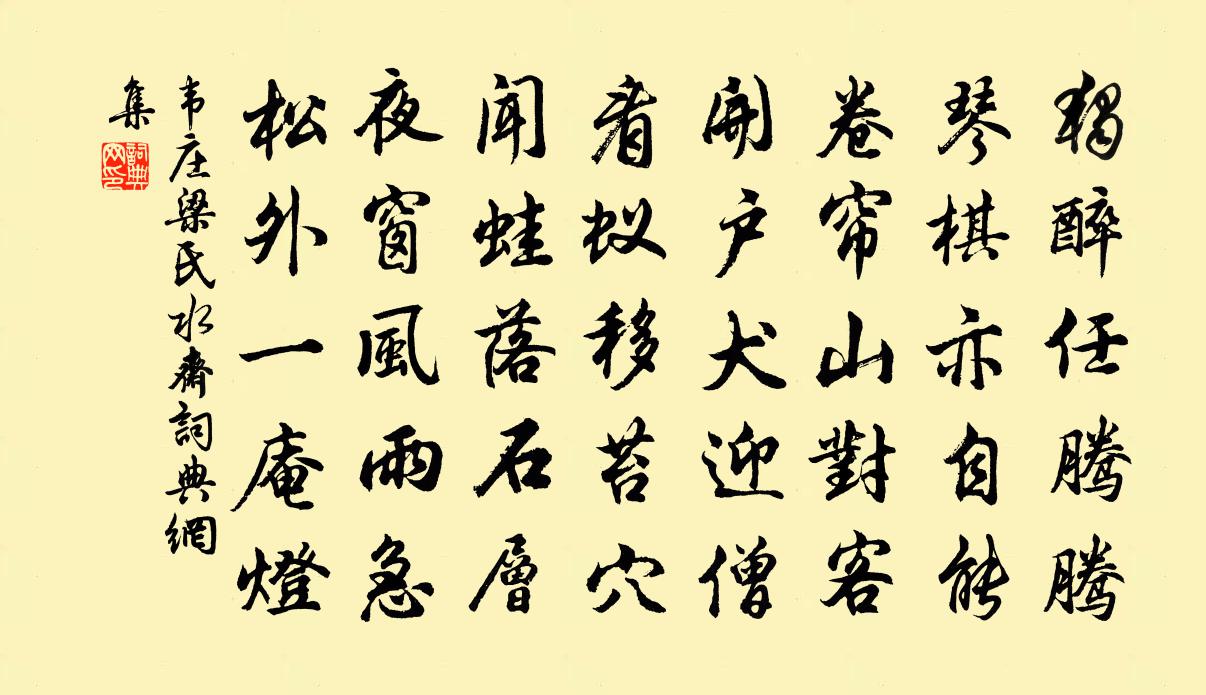 獨醉任騰騰
琴棋亦自能
卷帘山對客
開户犬迎僧
看蚁移苔穴
聞蛙落石層
夜窗風雨急
松外一庵燈
韦庄梁氏水齋詞典網
集
詞典
网印